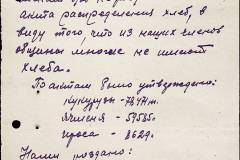 акта распределения хлеб, в
виду того, что из наших членов
общины многие не имеют
хлеба.
По актам было утверждено:
кукурузы -
Ячменя - 59585г.
проса - 8629.
Нами роздано: